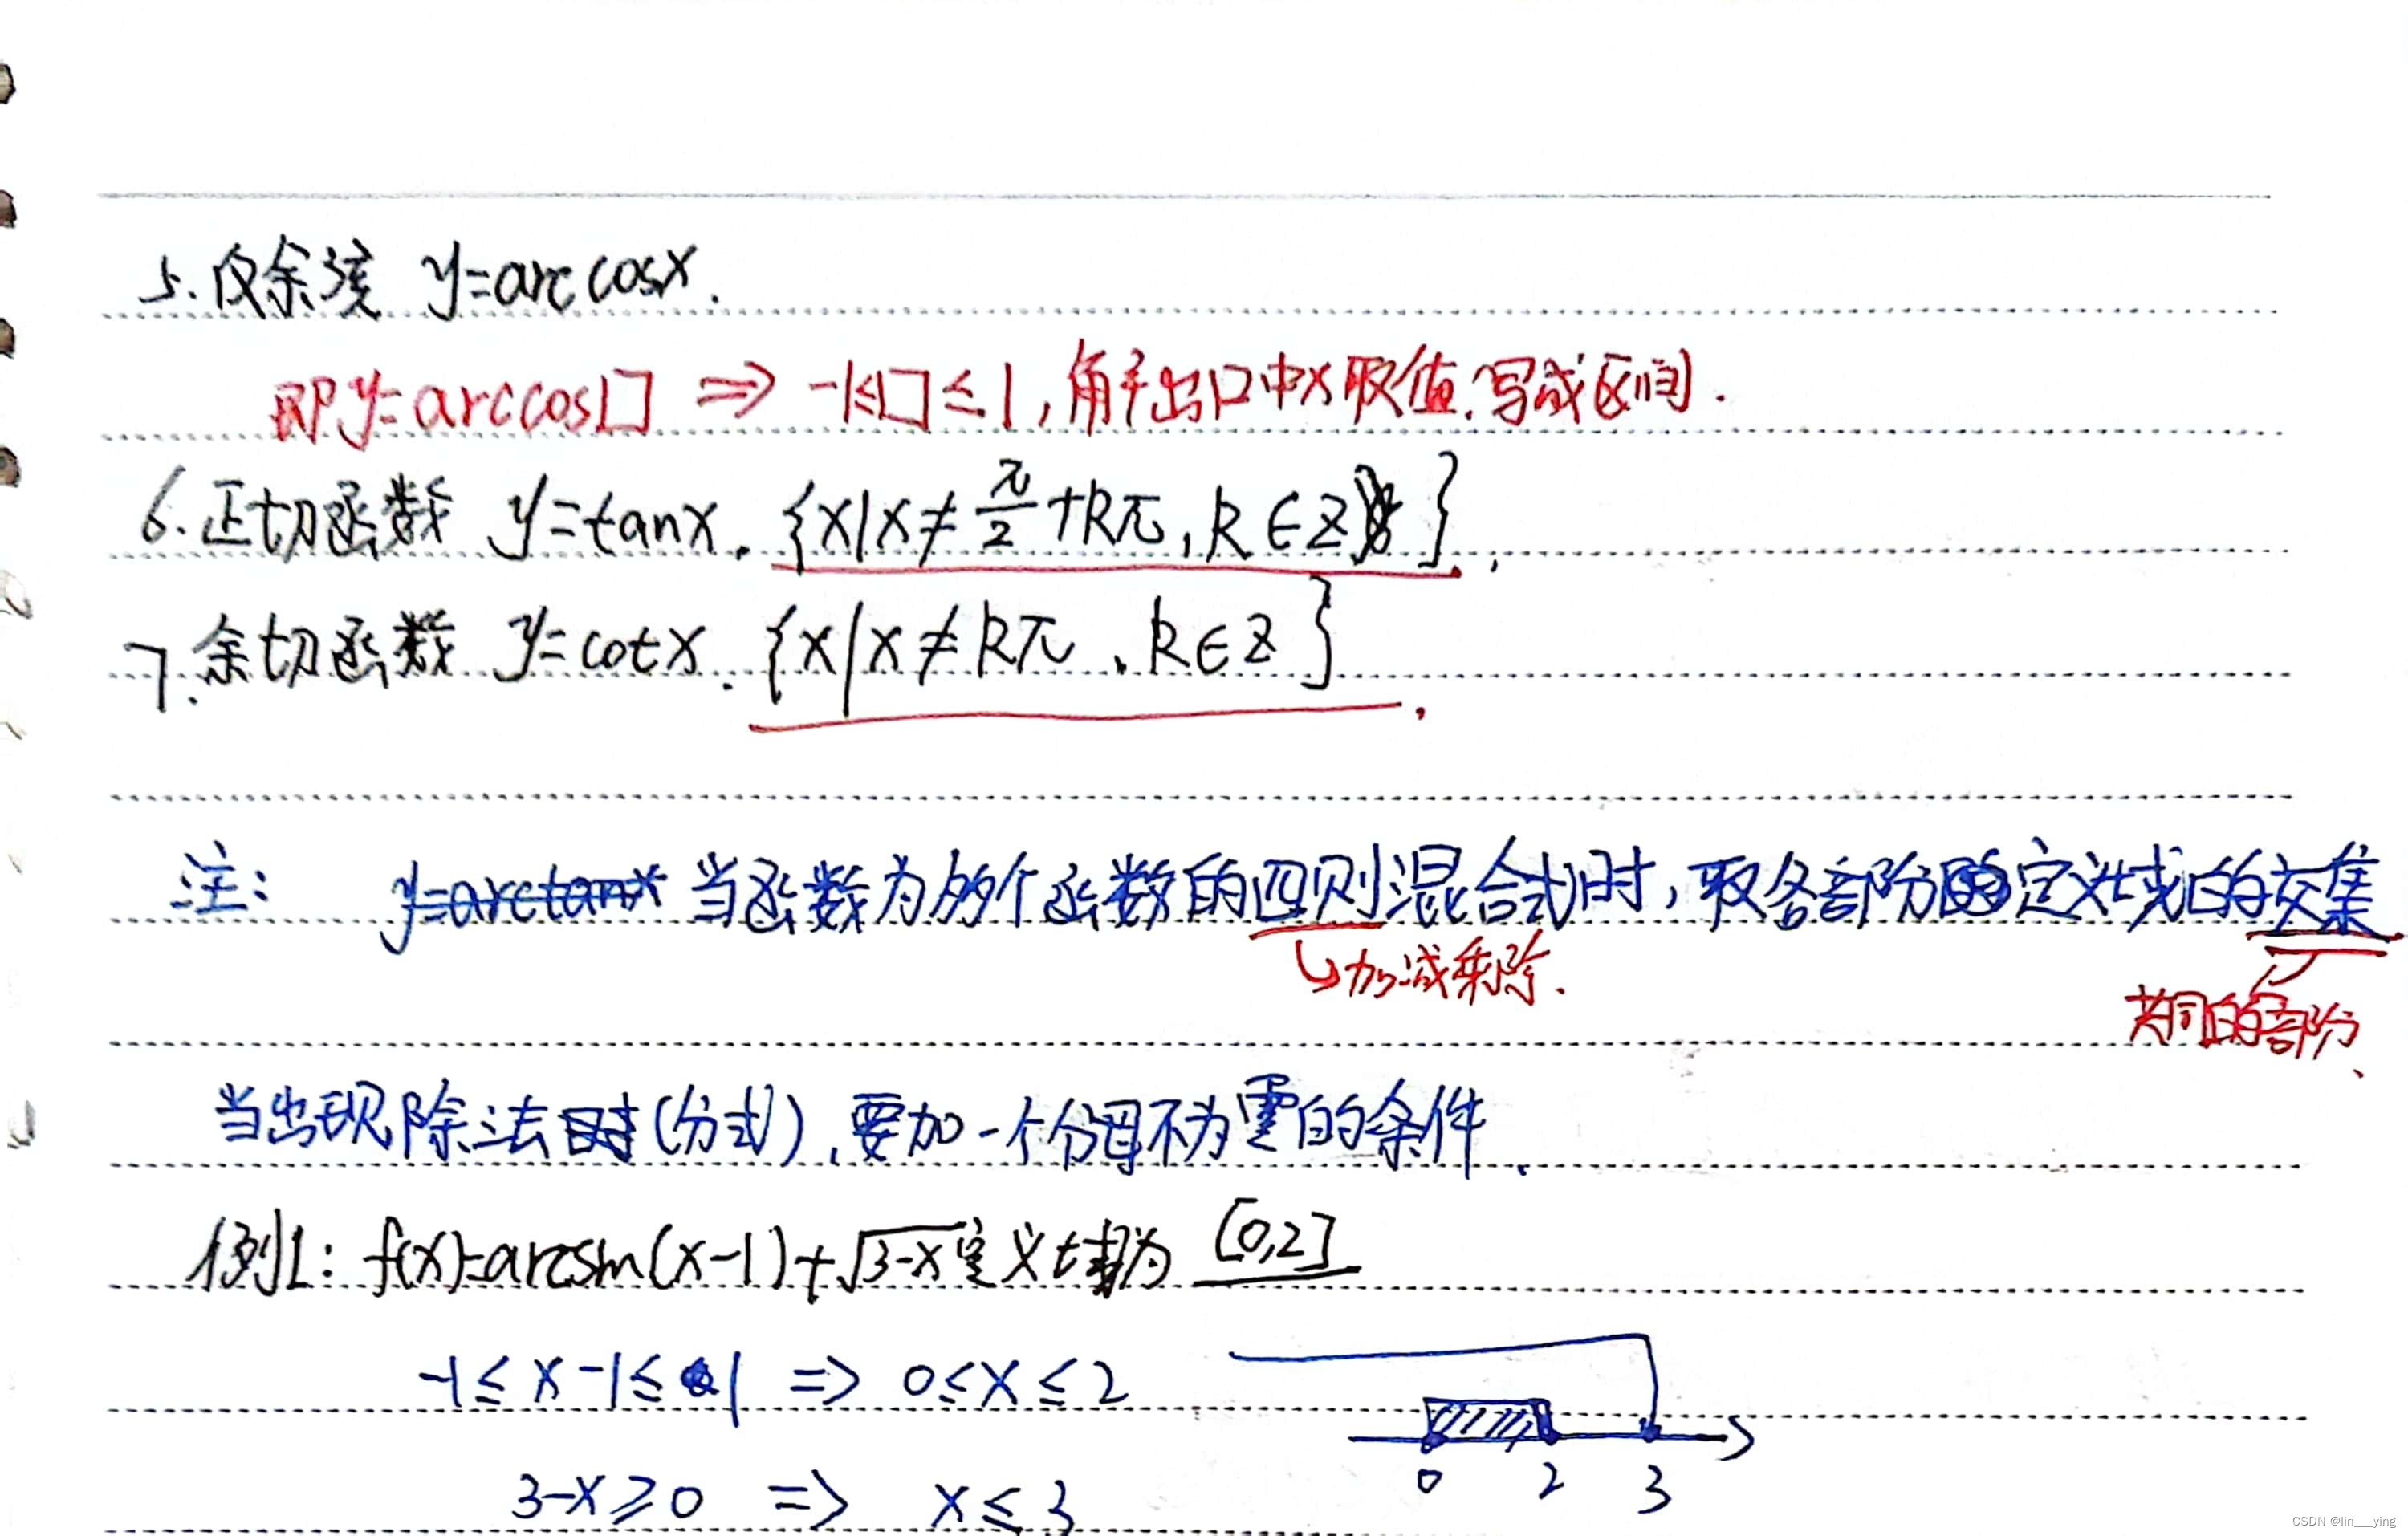 5.反余弦 y=arccosx.
即y=arccos口 => -1≤口≤1,解出口中x取值.写成区间.
6.正切函数 y=tanx. {x|x≠π/2+kπ,k∈Z}.
7.余切函数 y=cotx. {x|x≠kπ、k∈Z}.
注: y=arctanx 当函数为多个函数的四则混合式时,取各部分的定义域的交集
↳加减乘除.
共同的部分、
当出现除法时(分式),要加一个分母不为零的条件.
例1: f(x)=arcsin(x-1)+√3-x定义域为 [0,2]
-1≤x-1≤1 => 0≤x≤2
0 2 3
3-x≥0 => x≤3
CSDN @lin___ying